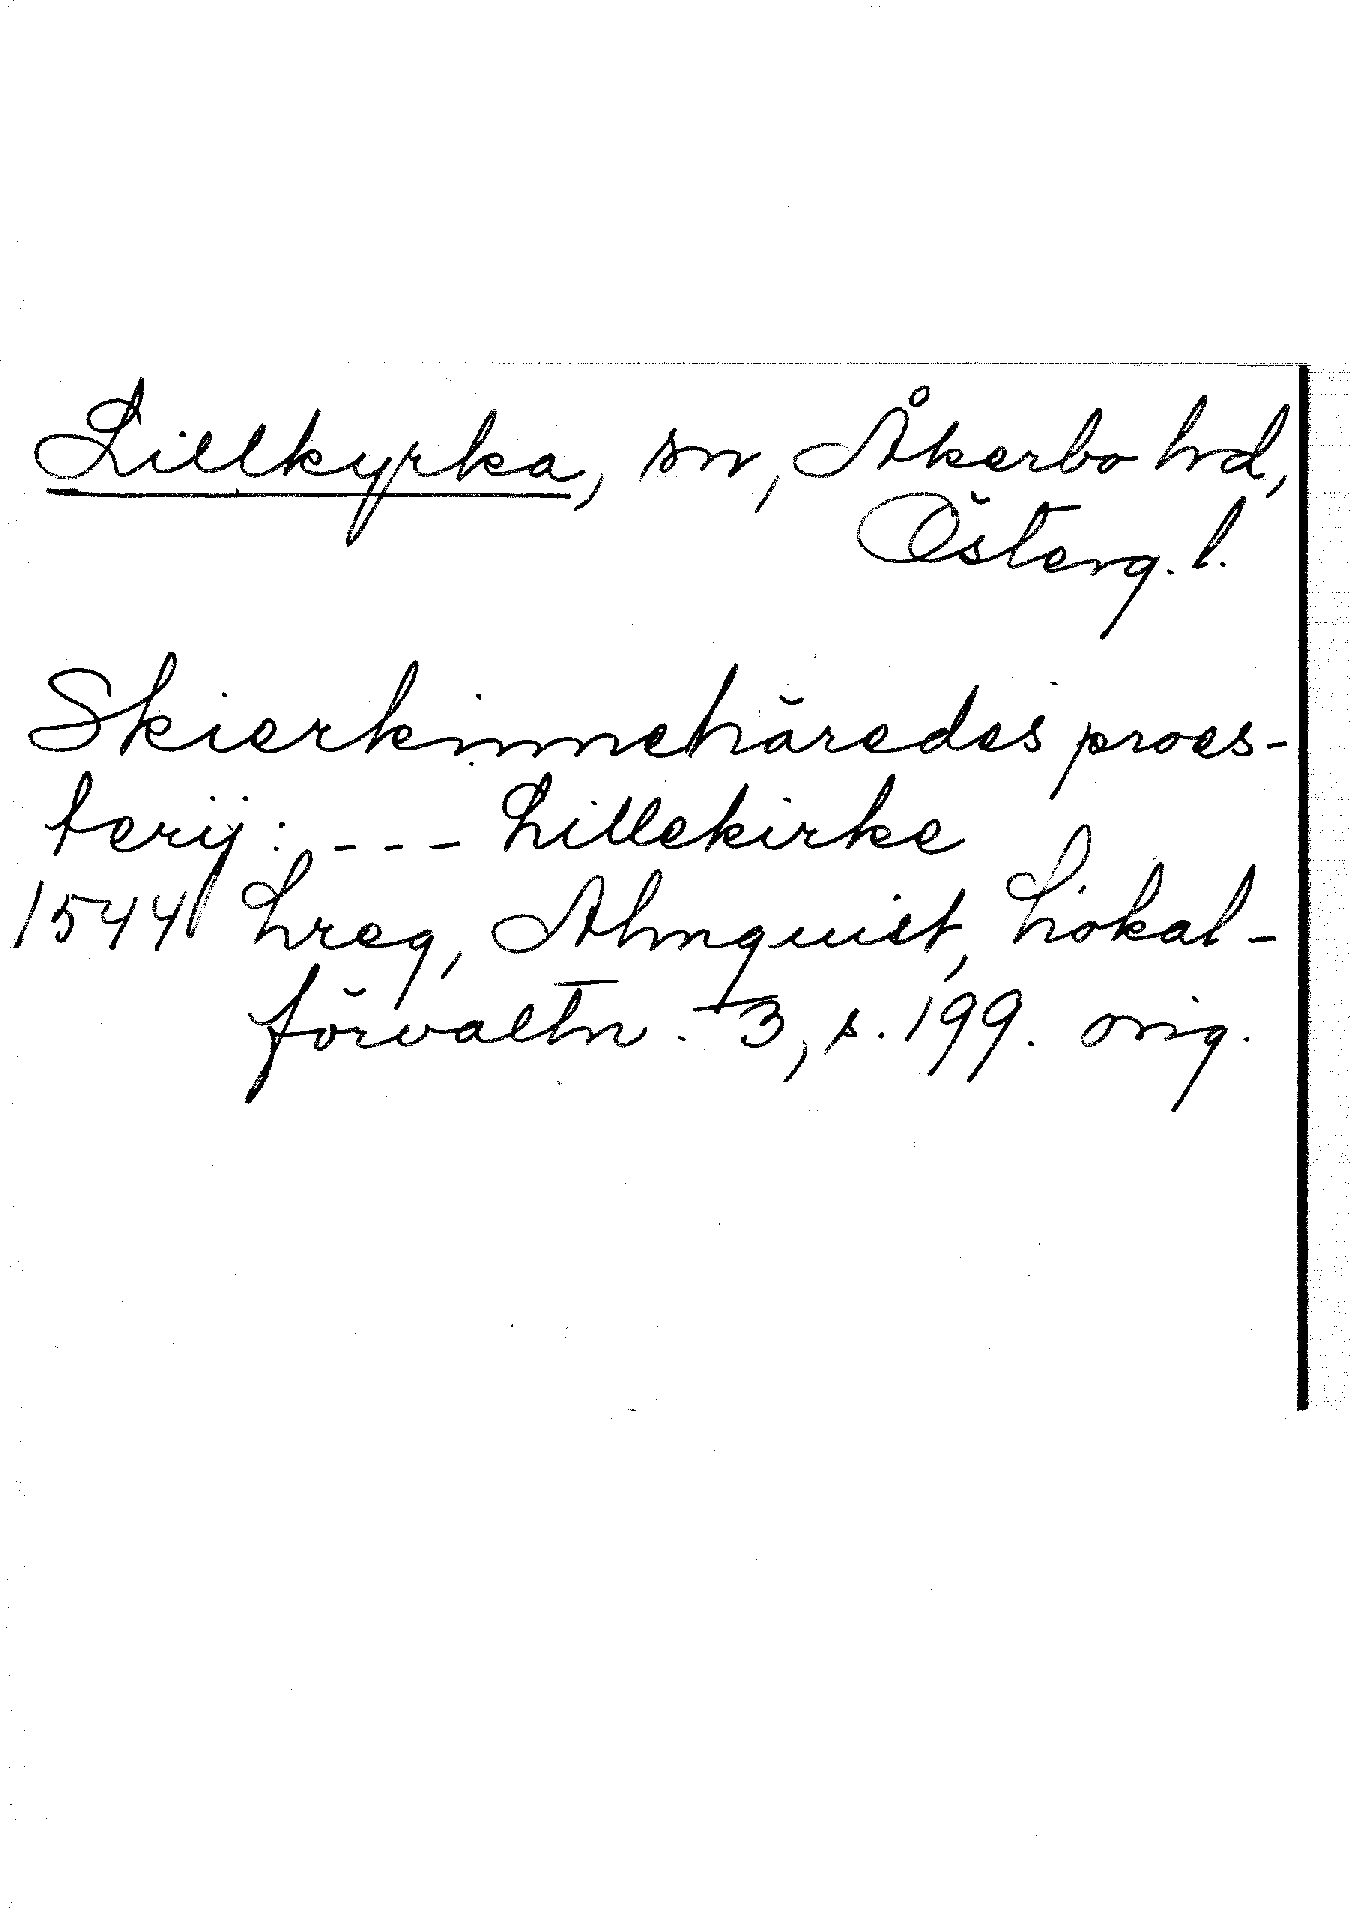 Lillkyrka, sn, Åkerbo hd,
Österg. l.
Skierkinnehäredis proes-
terij: --- Lillekirke
1544 Lreg, Almquist, Lokal-
förvaltn. 3, s. 199. orig.